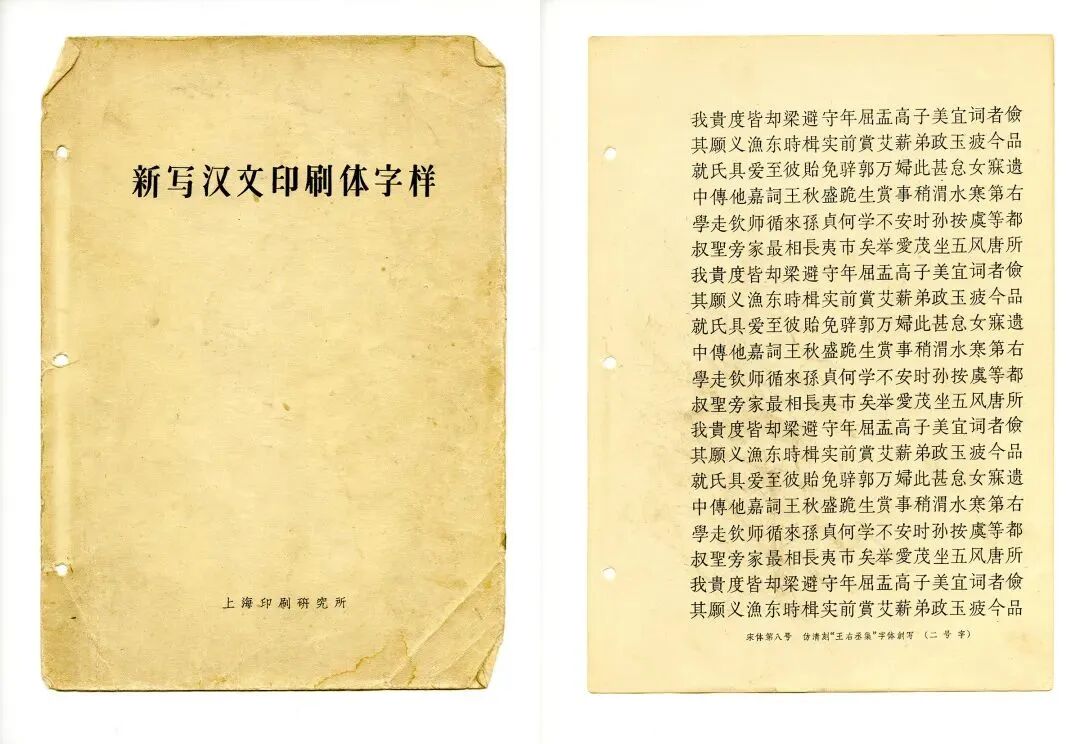 新写汉文印刷体字样
上海印刷研究所
我貴度皆却梁避守年屈盂高子美宜词者儉
其願义漁东時楫实前賞艾薪弟政玉疲今品
就氏具爱至彼貽免骍郭万婦此甚怠女寐遗
中傳他嘉詞王秋盛跪生赏事稍渭水寒第右
學走钦师循來孫貞何学不安时孙按虞等都
叔聖旁家最相長夷市矣举愛茂坐五风唐所
我貴度皆却梁避守年屈盂高子美宜词者儉
其願义漁东時楫实前賞艾薪弟政玉疲今品
就氏具爱至彼貽免骍郭万婦此甚怠女寐遗
中傳他嘉詞王秋盛跪生赏事稍渭水寒第右
學走钦师循來孫貞何学不安时孙按虞等都
叔聖旁家最相長夷市矣举愛茂坐五风唐所
我貴度皆却梁避守年屈盂高子美宜词者儉
其願义漁东時楫实前賞艾薪弟政玉疲今品
就氏具爱至彼貽免骍郭万婦此甚怠女寐遗
中傳他嘉詞王秋盛跪生赏事稍渭水寒第右
學走钦师循來孫貞何学不安时孙按虞等都
叔聖旁家最相長夷市矣举愛茂坐五风唐所
我貴度皆却梁避守年屈盂高子美宜词者儉
其願义漁东時楫实前賞艾薪弟政玉疲今品
宋体第八号 仿清刻“王右丞集”字体創写 （二号字）